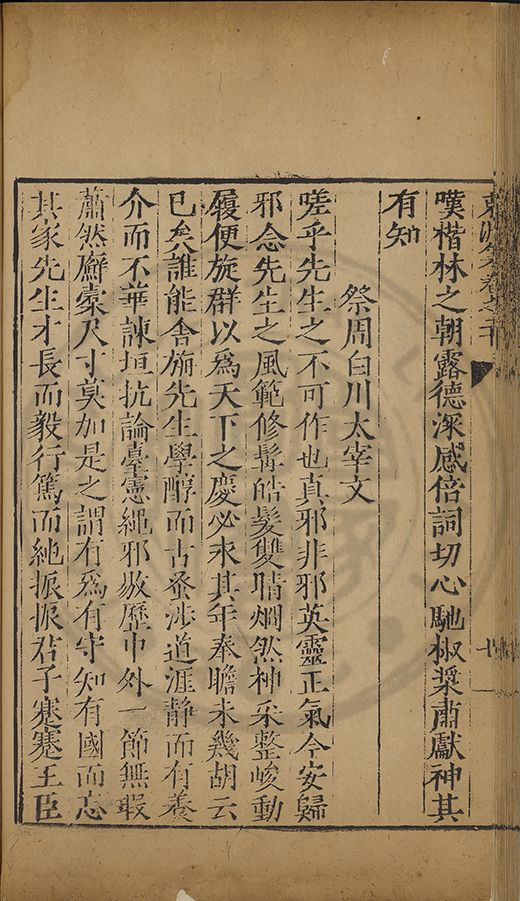 嘆楷林之朝露德深感倍詞切心馳椒漿肅獻神其
有知
祭周白川太宰文
嗟乎先生之不可作也真邪非邪英靈正氣今安歸
邪念先生之風範修髯皓髮雙睛烱然神采整峻動
履便旋群以爲天下之慶必永其年奉瞻未幾胡云
已矣誰能舍旃先生學醇而古蚤涉道涯靜而有養
介而不華諫垣抗論臺憲繩邪敭歷中外一節無瑕
蕭然廨橐尺寸莫加是之謂有爲有守知有國而忘
其家先生才長而毅行篤而純振振君子蹇蹇王臣